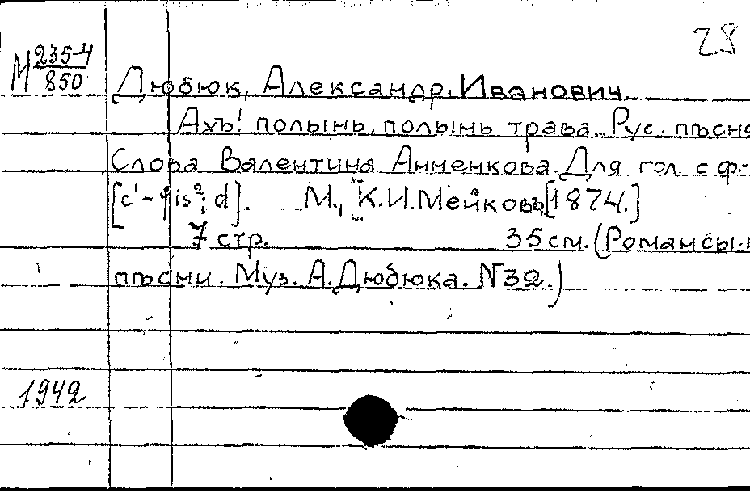 28
М 235-4
850
Дюбюк, Александр Иванович.
Ахъ! полынь, полынь трава. Рус. пѣсня
Слова Валентина Анненкова. Для гол. с ф-
[c¹-gis²; d]. М., К.И.Мейковъ [1874.]
7 стр. 35 см. (Романсы и
пѣсни. Муз. А. Дюбюка. N 32.)
1942